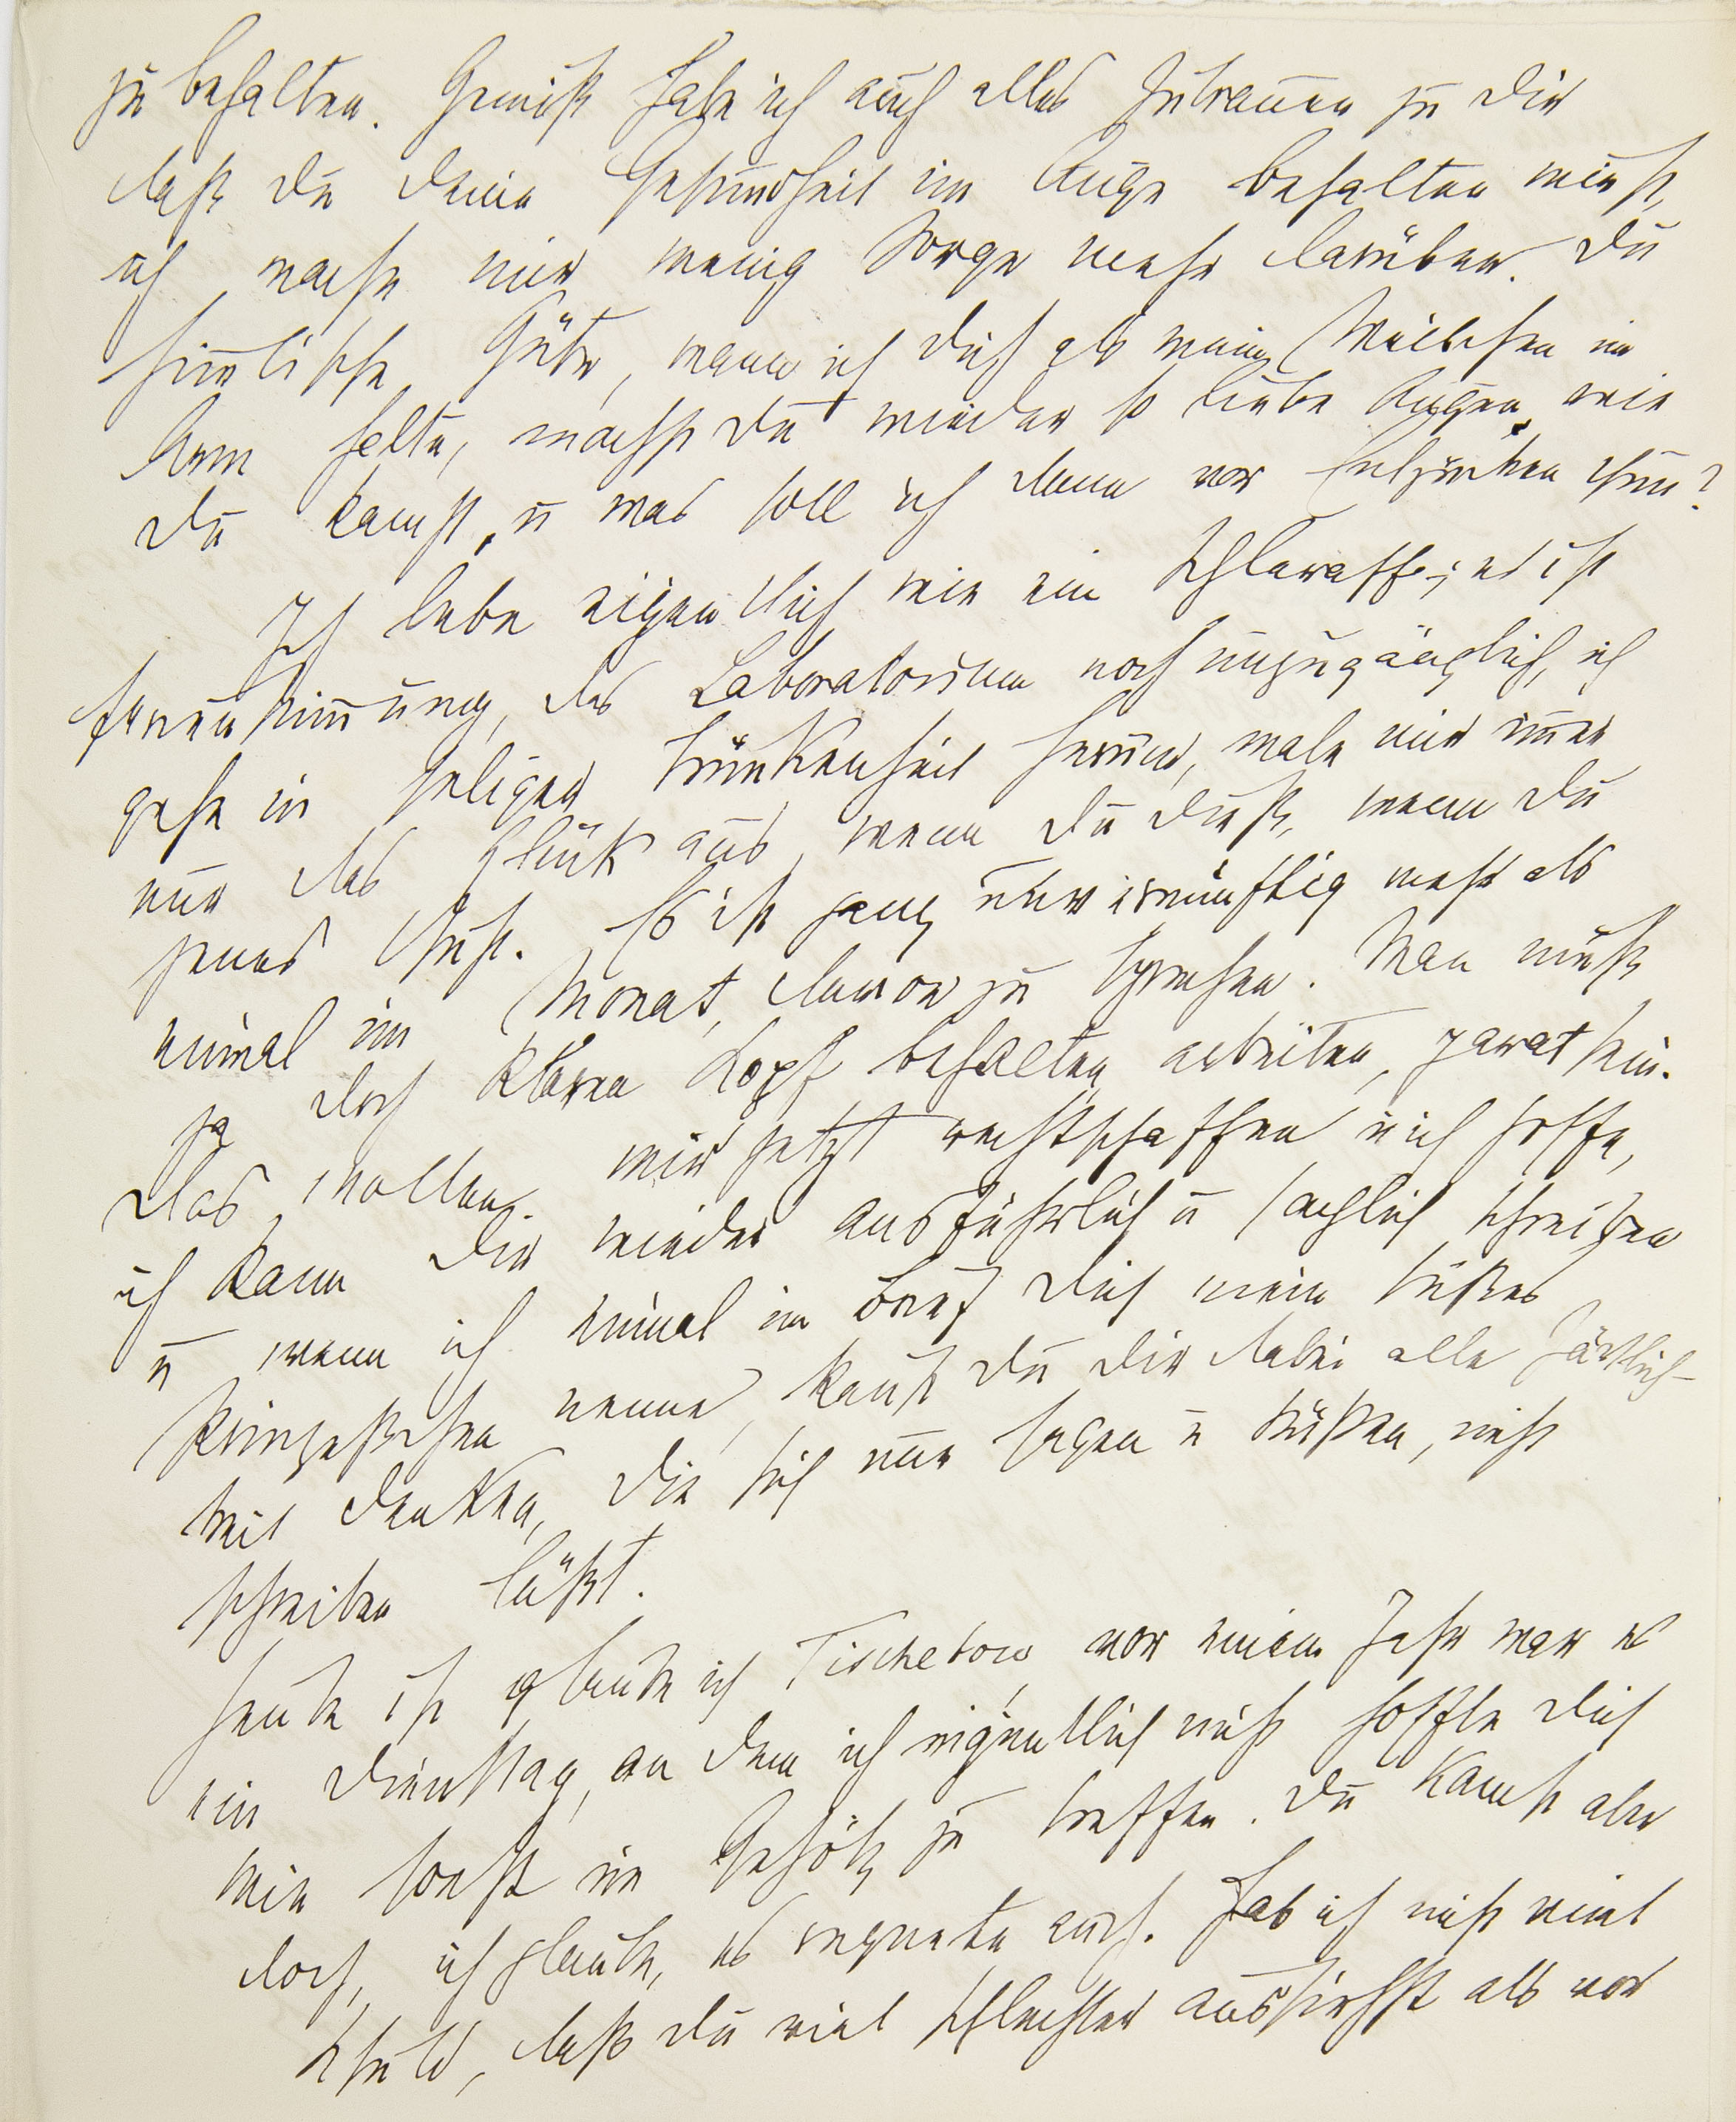 zu behalten. Gewiß habe ich auch alles Zutrauen zu Dir
daß Du Deine Gesundheit im Auge behalten wirst,
ich mache mir wenig Sorge mehr darüber. Du
himlische Güte, wenn ich Dich als mein Weibchen im
Arm halte, machst Du wieder so liebe Augen, wie
Du kannst, u was soll ich dann vor Entzücken thun?
Ich lebe eigentlich wie ein Schlaraffe; es ist
Ferienstimung, das Laboratorium noch unzugänglich, ich
gehe in seliger Trunkenheit herum, male mir imer
nur das Glück aus, wenn Du dieß, wenn Du
jenes thust. Es ist ganz unvernünftig mehr als
einmal im Monat davon zu sprechen. Man muß
ja doch klaren Kopf behalten, arbeiten, parat sein.
Das wollen wir jetzt rechtschaffen u ich hoffe,
ich kann Dir wieder ausführlich u sachlich schreiben
u wenn ich einmal im Brief Dich mein süßes
Prinzeßchen nenne, kanst Du Dir dabei alle Zärtlich-
keit denken, die sich nur sagen u küßen, nicht
schreiben läßt.
Heute ist glaube ich Tischebow, vor einem Jahr war es
ein Dienstag, an dem ich eigentlich nicht hoffte Dich
wie sonst im Gehölz zu treffen. Du kamst aber
doch, ich glaube, es regnete auch. Hab ich nicht viel
Schuld, daß Du viel schlechter aussiehst als vor